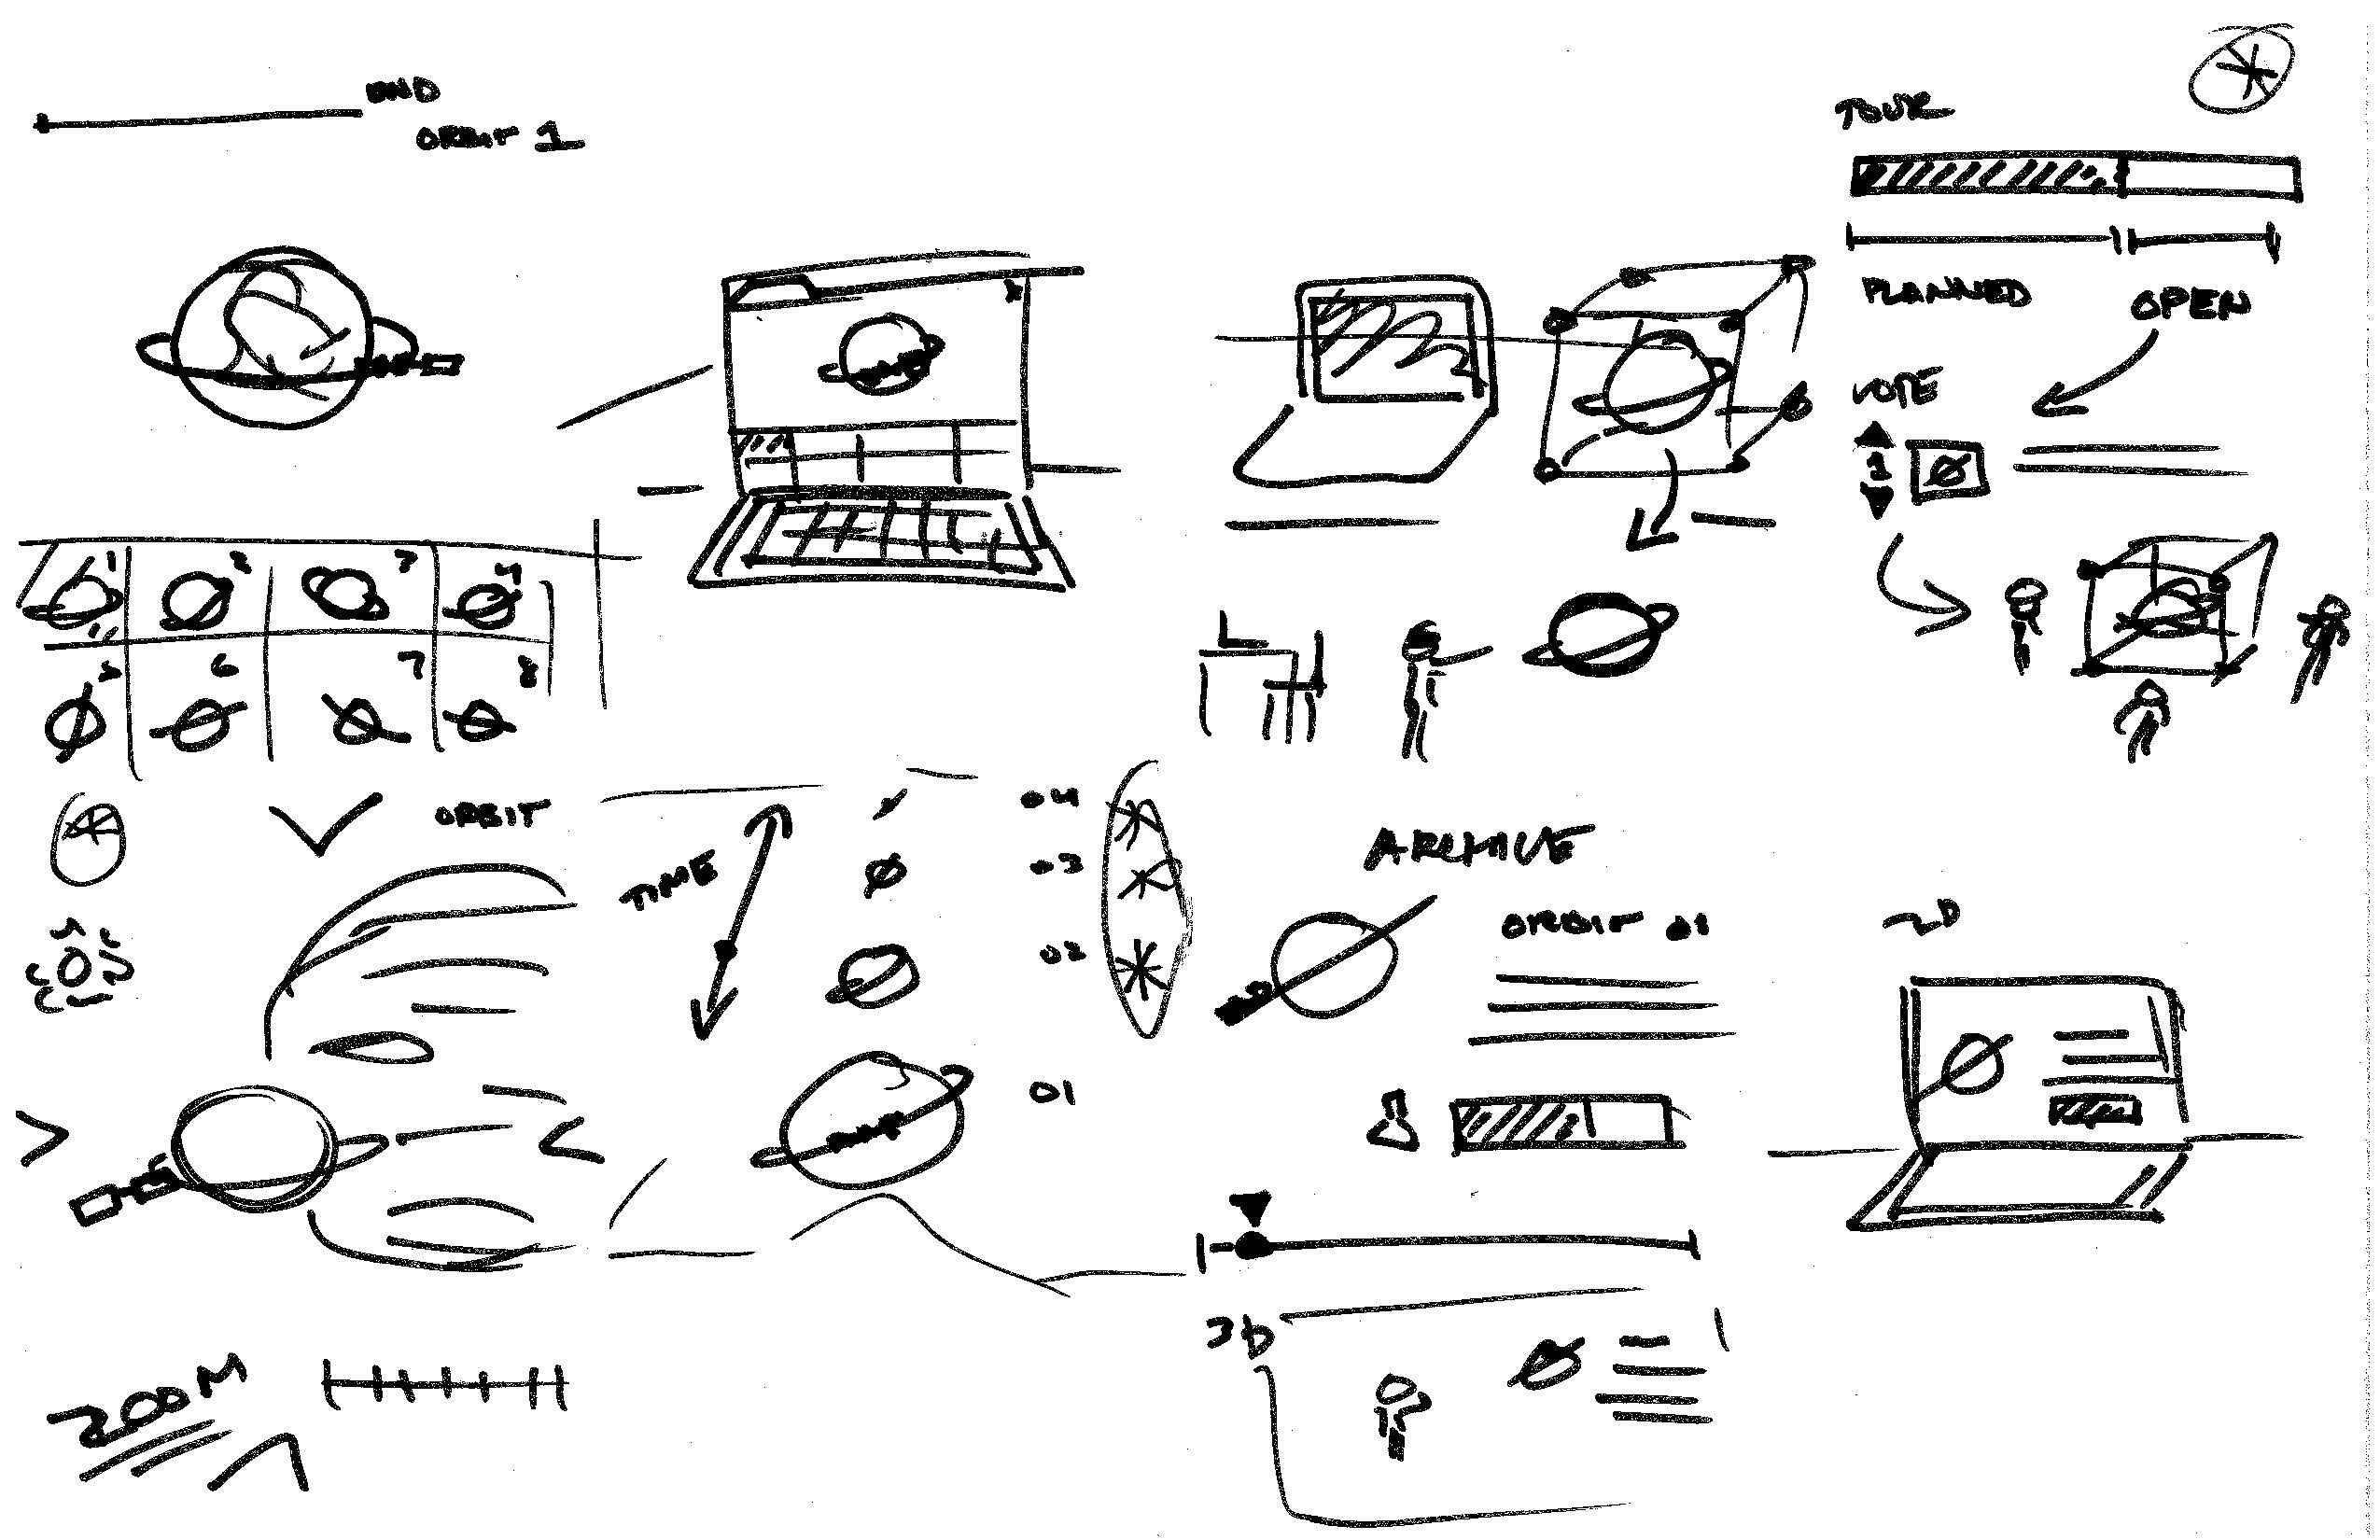 END
ORBIT 1
TOUR
PLANNED
OPEN
VOTE
1
1 2 3 4
5 6 7 8
ORBIT
TIME
04
03
02
01
ARCHIVE
ORBIT 01
2D
3D
200M